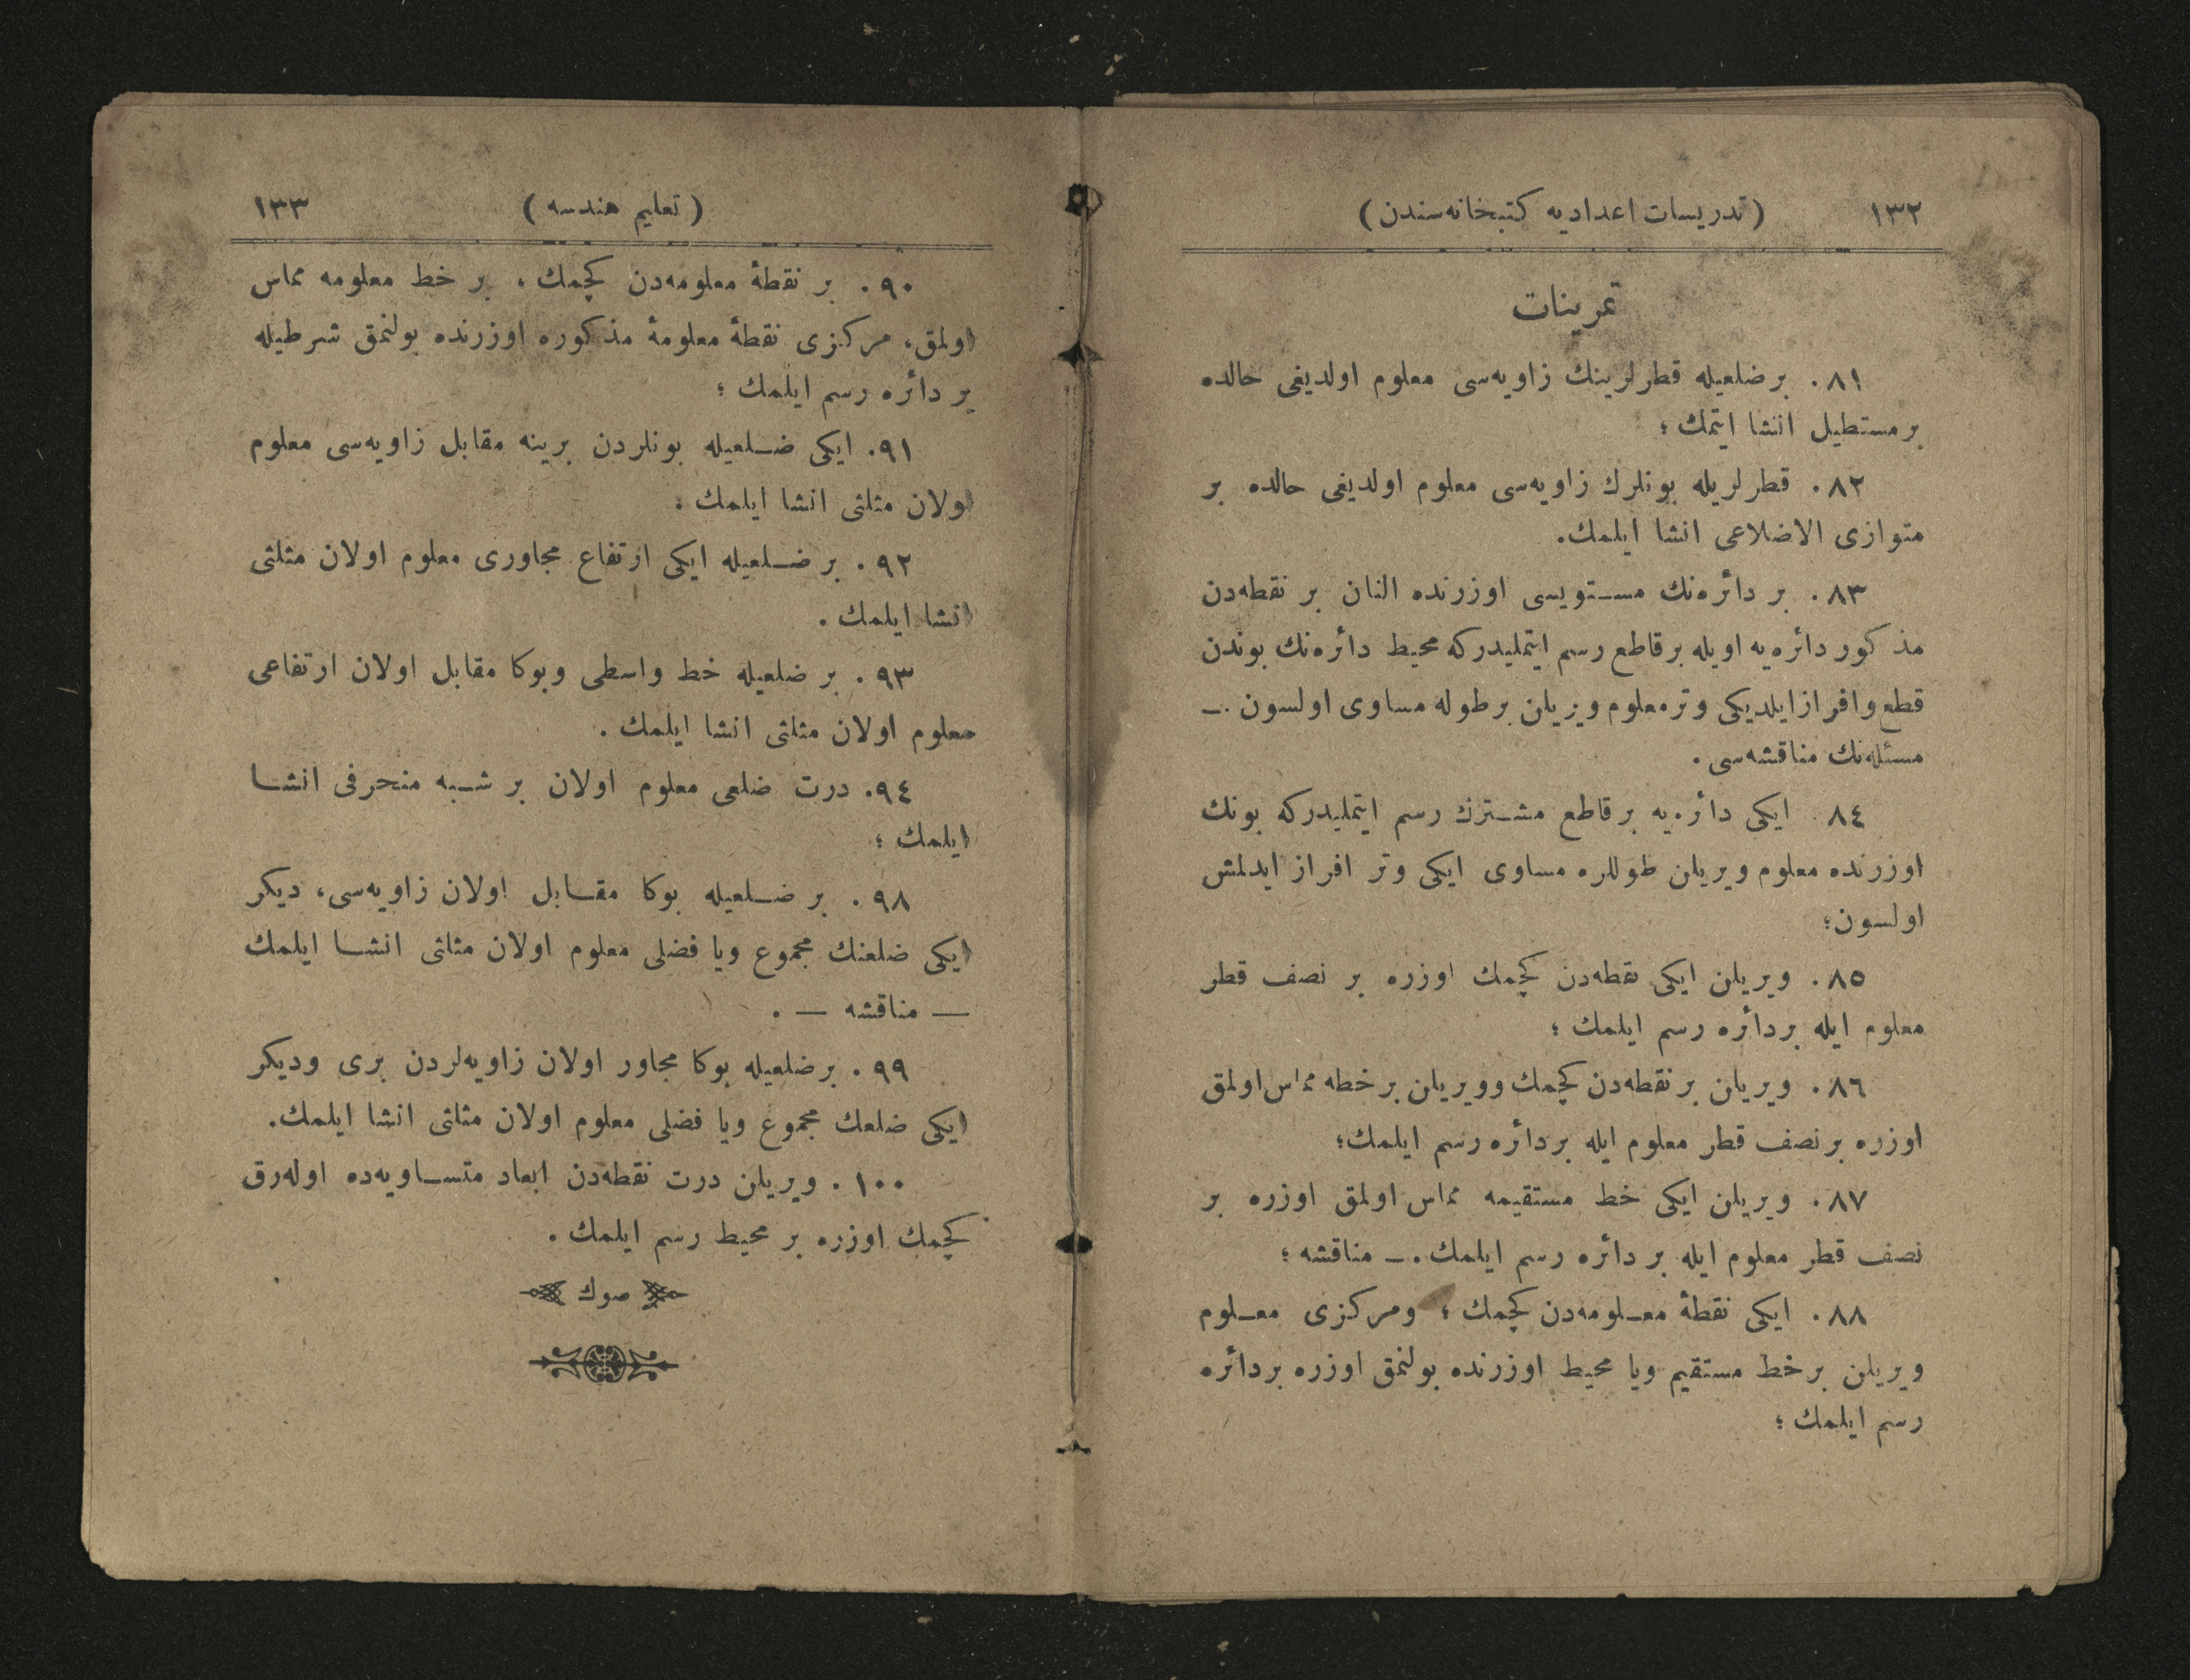 ١٣٢ (تدريسات اعداديه كتبخانه‌سندن)
تمرينات
٨١. بر ضلعيله قطرلرينك زاويه‌سى معلوم اولديغى حالده
بر مستطيل انشا ايتمك ؛
٨٢. قطرلريله بونلرك زاويه‌سى معلوم اولديغى حالده بر
متوازى الاضلاعى انشا ايلمك.
٨٣. بر دائره‌نك مستويسى اوزرنده النان بر نقطه‌دن
مذكور دائره‌يه اويله بر قاطع رسم ايتمليدركه محيط دائره‌نك بوندن
قطع وافراز ايلديكى وتر معلوم ويريلن بر طوله مساوى اولسون .ـ
مسئله‌نك مناقشه‌سى.
٨٤. ايكى دائره‌يه بر قاطع مشترك رسم ايتمليدركه بونك
اوزرنده معلوم ويريلن طوللره مساوى ايكى وتر افراز ايدلمش
اولسون؛
٨٥. ويريلن ايكى نقطه‌دن كچمك اوزره بر نصف قطر
معلوم ايله بر دائره رسم ايلمك ؛
٨٦. ويريلن بر نقطه‌دن كچمك وويريلن بر خطه مماس اولمق
اوزره بر نصف قطر معلوم ايله بر دائره رسم ايلمك؛
٨٧. ويريلن ايكى خط مستقيمه مماس اولمق اوزره بر
نصف قطر معلوم ايله بر دائره رسم ايلمك .ـ مناقشه ؛
٨٨. ايكى نقطهٔ معلومه‌دن كچمك ؛ ومركزى معلوم
ويريلن بر خط مستقيم ويا محيط اوزرنده بولنمق اوزره بر دائره
رسم ايلمك ؛
(تعليم هندسه) ١٣٣
٩٠. بر نقطهٔ معلومه‌دن كچمك ، بر خط معلومه مماس
اولمق، مركزى نقطهٔ معلومهٔ مذكوره اوزرنده بولنمق شرطيله
بر دائره رسم ايلمك ؛
٩١. ايكى ضلعيله بونلردن برينه مقابل زاويه‌سى معلوم
اولان مثلثى انشا ايلمك .
٩٢. بر ضلعيله ايكى ارتفاع مجاورى معلوم اولان مثلثى
انشا ايلمك .
٩٣. بر ضلعيله خط واسطى وبوكا مقابل اولان ارتفاعى
معلوم اولان مثلثى انشا ايلمك .
٩٤. درت ضلعى معلوم اولان بر شبه منحرفى انشا
ايلمك ؛
٩٨. بر ضلعيله بوكا مقابل اولان زاويه‌سى، ديكر
ايكى ضلعنك مجموع ويا فضلى معلوم اولان مثلثى انشا ايلمك
— مناقشه — .
٩٩. بر ضلعيله بوكا مجاور اولان زاويه‌لردن برى وديكر
ايكى ضلعك مجموع ويا فضلى معلوم اولان مثلثى انشا ايلمك.
١٠٠. ويريلن درت نقطه‌دن ابعاد متساويه‌ده اوله‌رق
كچمك اوزره بر محيط رسم ايلمك .
صوك